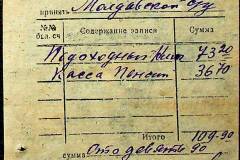 принять Молдавской ССР
№№ бух. сч Содержание записи Сумма
Подоходный 73 20
Касса Пенсии 36 70
Итого 109-90
сумма Сто девять 90